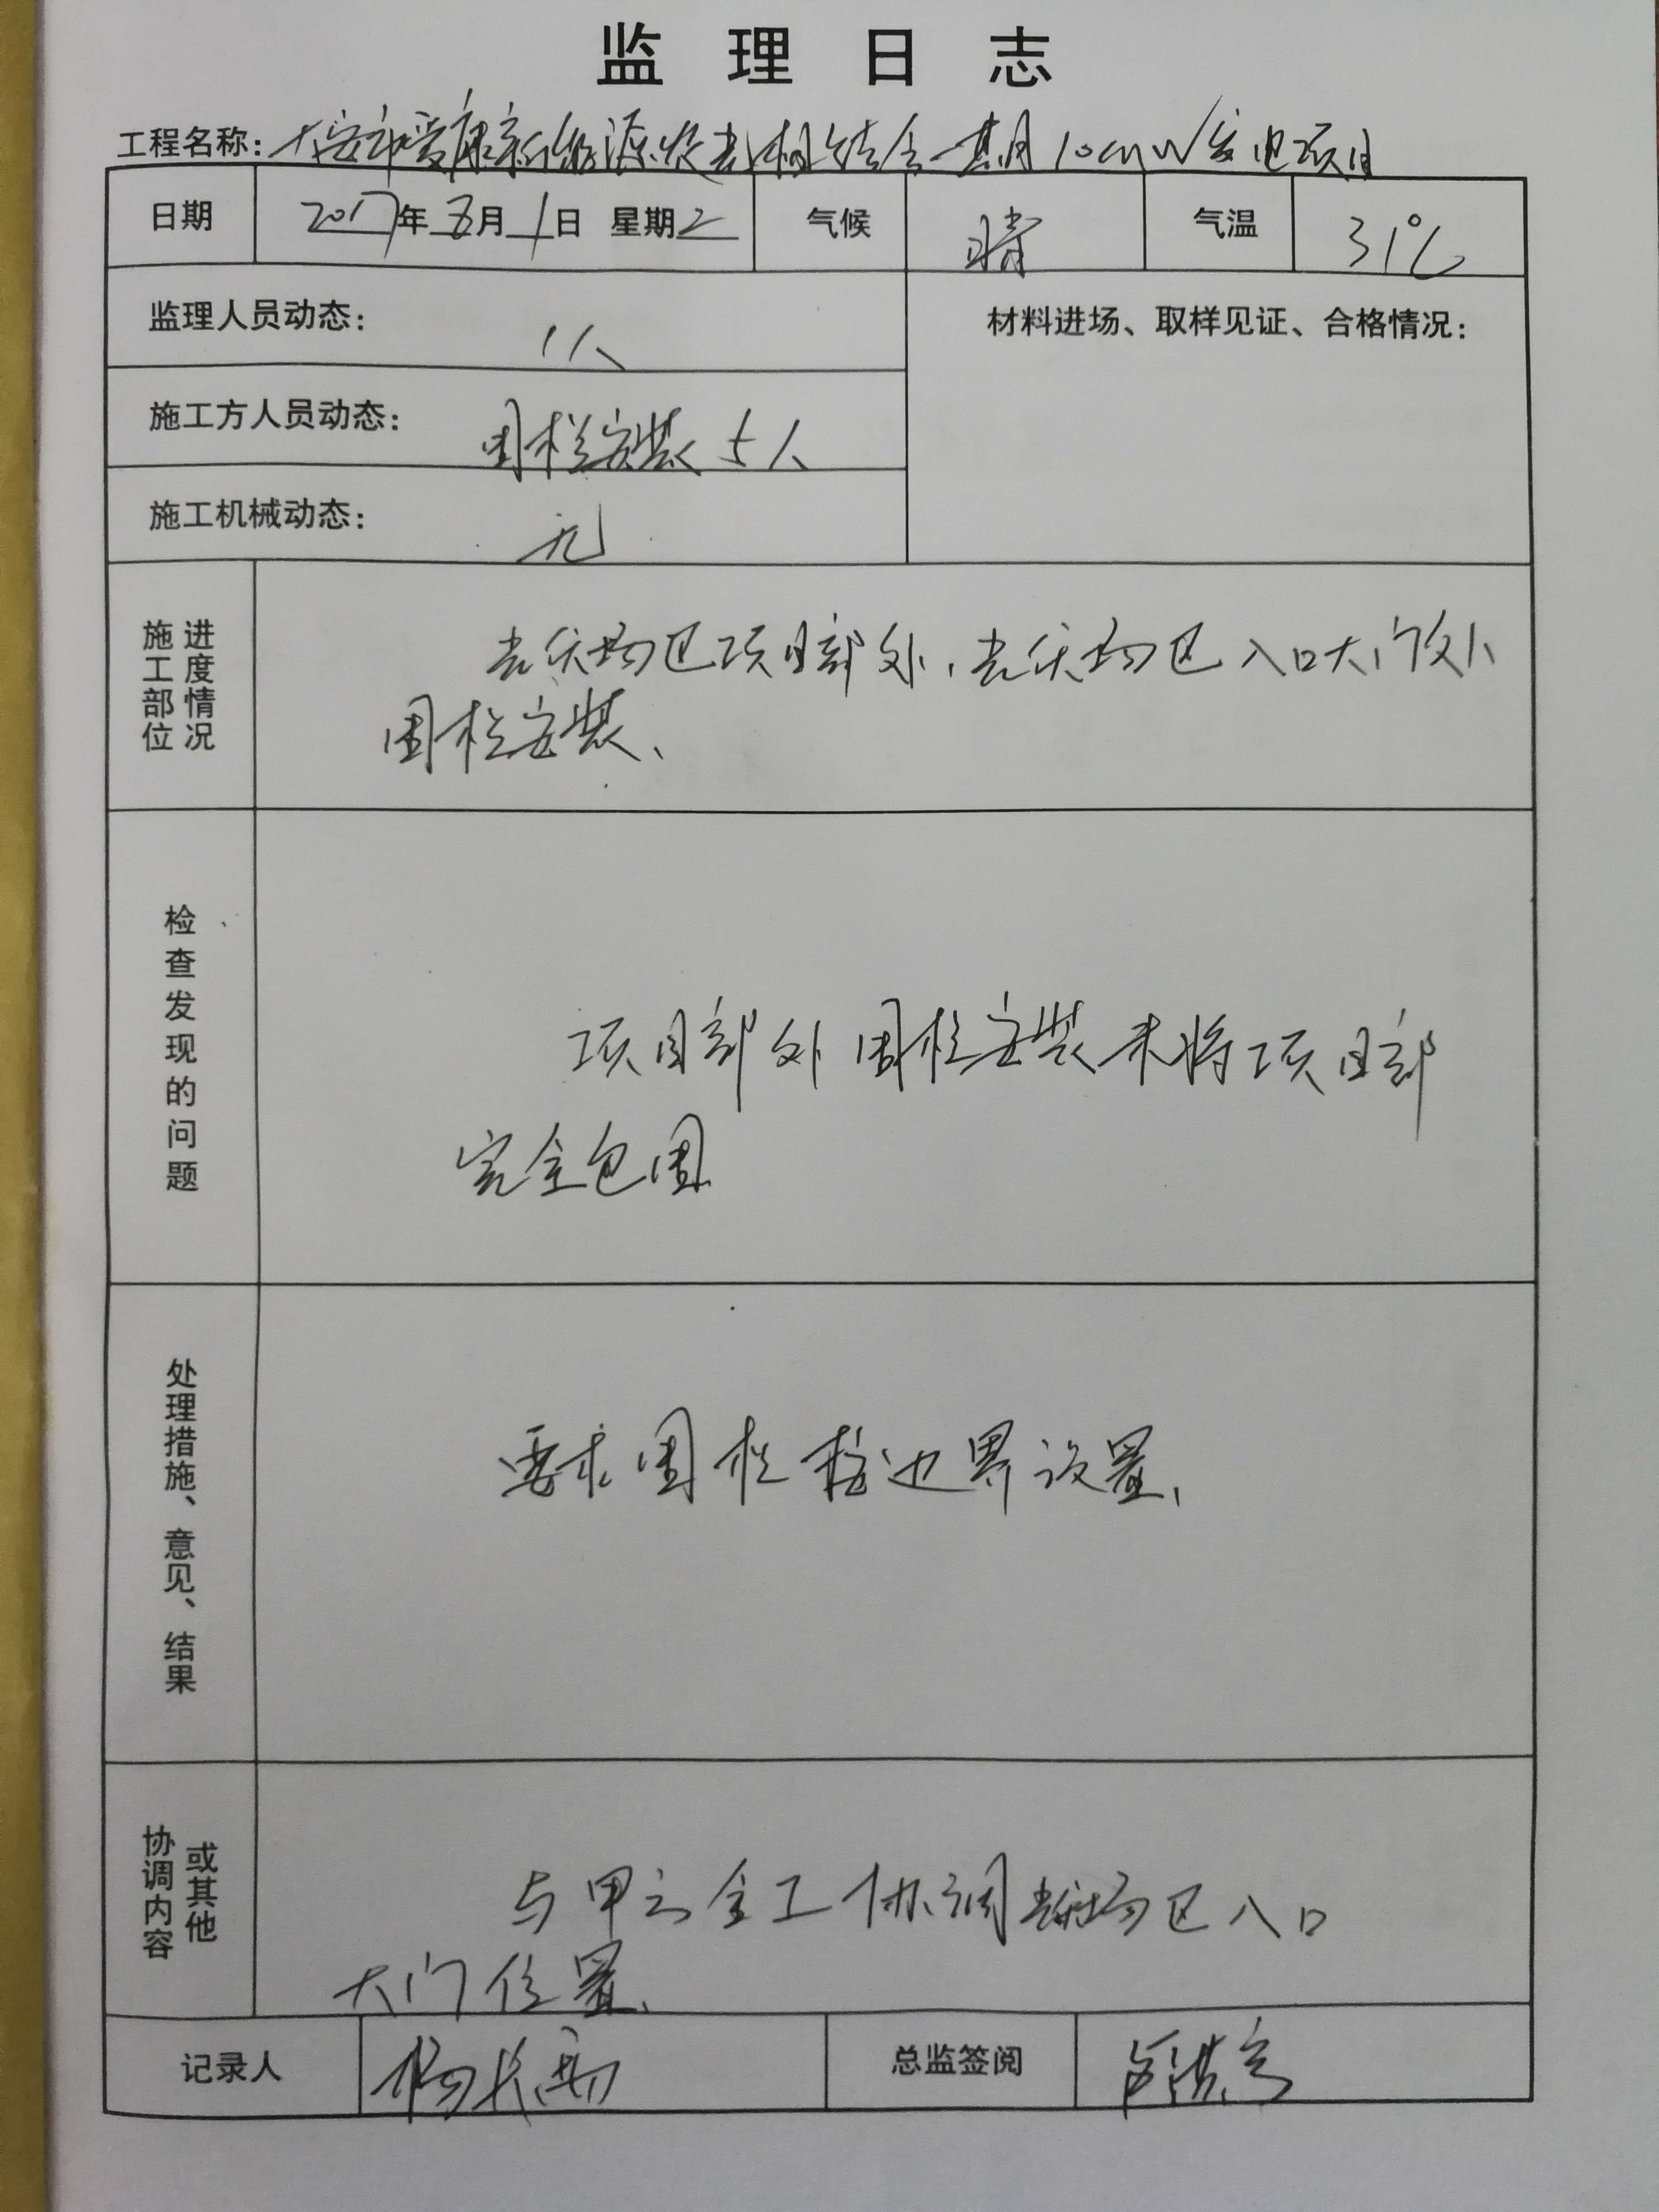 监理日志
工程名称：大安市爱康新能源牧光相结合一期10MW发电项目
日期 2017年8月1日 星期2 气候 晴 气温 31℃
监理人员动态： 1人
材料进场、取样见证、合格情况：
施工方人员动态： 围栏安装5人
施工机械动态： 无
施工部位
进度情况
光伏场区项目部外、光伏场区入口大门外
围栏安装、
检查发现的问题
项目部外围栏安装未将项目部
完全包围
处理措施、意见、结果
要求围栏按边界设置、
协调内容
或其他
与甲方金工协调光伏场区入口
大门位置、
记录人 杨长
总监签阅